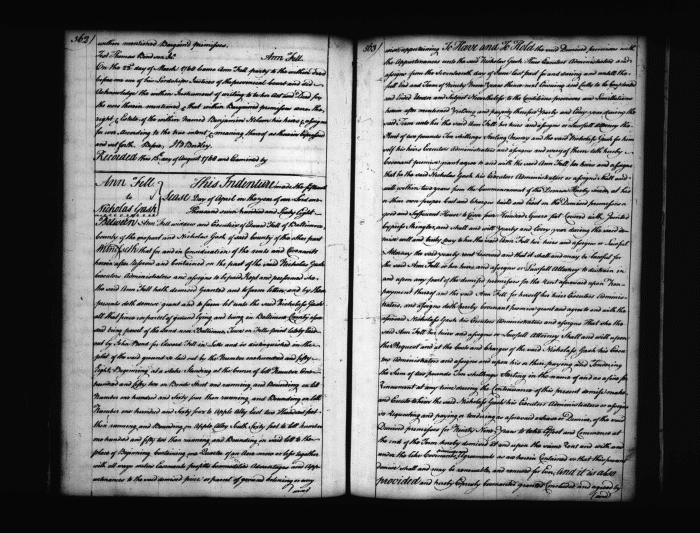 362
within mentioned Bargained premisses.
Test Thomas Bond son Jno.
Ann Fell
On the 25th day of March 1768 came Ann Fell party to the within Deed
before me one of his Lordships Justices of the provincial Court and did
Acknowledge the within Instrument of writing to be her Act and Deed for
the uses therein mentioned & the within Bargained premisses to be the
right & Estate of the within Named Benjamin Nelson his heirs & assigns
for ever According to the true intent & meaning thereof as therein Expressed
and set forth. Before. J B Bordley.
Recorded this 12th day of August 1768 and Examined by
Ann Fell
to
Nicholas Gash
Lease
This Indenture made the fifteenth
Day of April in the year of our Lord one
Thousand seven hundred and Sixty Eight
Between Ann Fell widow and Executrix of Edward Fell of Baltimore
County of the one part and Nicholas Gash of said County of the other part
Witnesseth that for and in Consideration of the rents and Covenants
herein after reserved and Contained on the part of the said Nicholas Gash
Executors Administrators and assigns to be paid kept and performed she
the said Ann Fell hath demised Granted and to farm letten and by these
presents doth demise grant and to farm let unto the said Nicholas Gash
all that piece or parcel of ground lying and being in Baltimore County afsd
and being part of the land near Baltimore Town on Fells point lately laid
out by John Bond for Edward Fell in Lotts and is distinguished in the
plot of the said ground as laid out by the Number one hundred and fifty
Eight, Beginning at a stake Standing at the corner of lott Number One
hundred and fifty two on Bond Street and running and Bounding on lott
Number one hundred and sixty five then running and Bounding on lott
Number one hundred and sixty four to Apple Alley East two hundred feet
then running and Bounding on Apple Alley South sixty feet to lott Number
one hundred and fifty two then running and Bounding on said lott to the
place of Beginning Containing one Quarter of an Acre more or less together
with all ways waters Easements profits Commodities Advantages and Appur
tenances to the said demised piece or parcel of ground belonging or any
363
wise appertaining To Have and To Hold the said Demised premisses with
the Appurtenances unto the said Nicholas Gash Executors Administrators and
assigns from the Seventeenth day of June last past for and during and untill the
full End and Term of Ninety Nine Years thence next Ensuing and fully to be Compleated
and Ended Under and Subject Nevertheless to the Conditions provisoes and limitations
herein after mentioned Yielding and paying therefor Yearly and Every year during the
said Term unto her the said Ann Fell her heirs and assigns or lawfull Attorney the
Rent of two pounds Ten shillings Sterling Money and the said Nicholas Gash for him
self his heirs Executors Administrators and assigns and every of them doth hereby
Covenant promise grant agree to and with the said Ann Fell her heirs and assigns
that he the said Nicholas Gash his Executors Administrators or assigns shall and
will within two years from the Commencement of the Demise hereby made at his
or their own proper cost and charges build and Erect on the Demised premisses a
good and sufficient House to Cover four Hundred square feet Covered with Jointed
Cypress Shingles, and shall and will Yearly and Every year during the said de
mise well and truly pay to her the said Ann Fell her heirs and assigns or lawfull
Attorney the said yearly rent reserved and that it shall and may be lawful for
the said Ann Fell or her heirs and assigns or lawfull Attorney to distrain in
and upon any part of the demised premisses for the rent aforesaid upon Non
payment thereof and the said Ann Fell for herself her heirs Executors Adminis-
trators, and assigns doth hereby Covenant promise grant and agree to and with the
aforesaid Nicholas Gash his Executors Administrators and assigns That she the
said Ann Fell her heirs and assigns or lawfull Attorney Shall and will upon
the Request and at the Costs and charges of the said Nicholas Gash his Execu
tors Administrators and assigns upon his or their paying and Tendering
the Sum of two pounds Ten shillings Sterling in the name of and as a fine for
Renewment at any time during the Continuance of this present demise make
and Execute to him the said Nicholas Gash his Executors Administrators or assigns
so Requesting and paying or tendering as aforesaid a lease or Demise of the same
Demised premisses for Ninety Nine Years to take Effect and Commence at
the end of the Term hereby demised at and upon the same Rent and with and
under the like Covenants & Agreements as are herein Contained so that this present
demise shall and may be renewable and renewed for Ever, and it is also
provided and hereby Expressly Covenanted granted Concluded and agreed by
and